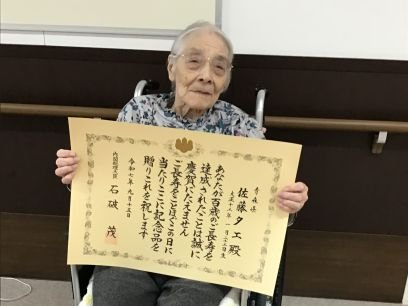 青森県
佐藤タエ殿
大正十四年一月二十三日生
あなたが百歳のご長寿を
達成されたことは誠に
慶賀にたえません
ご長寿をことほぐこの日に
当たりここに記念品を
贈りこれを祝します
令和七年九月十五日
内閣総理大臣 石破 茂